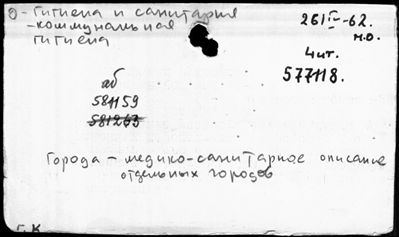 О - Гигиена и санитария
- коммунальная
гигиена
261 I - 62.
н.о.
4 чит.
577118.
аб
584159
581263
Города – медико-санитарное описание
отдельных городов
Г. К